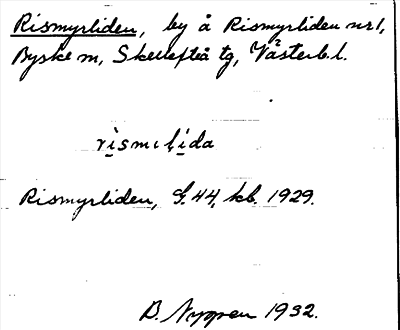 Rismyrliden, by å Rismyrliden nr 1,
Byske sn, Skellefteå tg, Västerb. l.
rismɩḷida
Rismyrliden, G. 44, kb. 1929.
B. Nygren 1932.